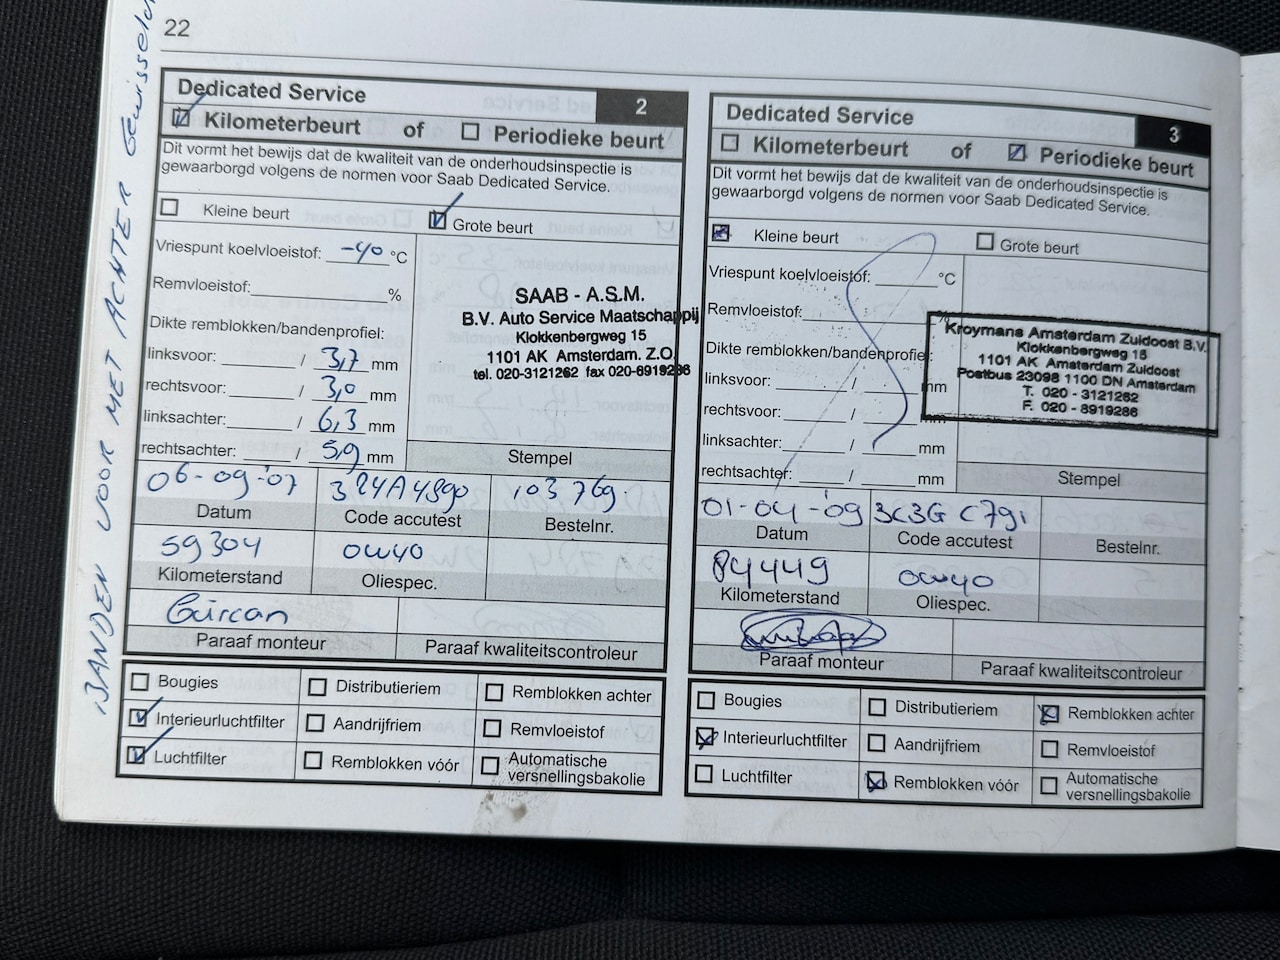 22
BANDEN VOOR MET ACHTER Gewisseld
Dedicated Service 2
Kilometerbeurt of Periodieke beurt
Dit vormt het bewijs dat de kwaliteit van de onderhoudsinspectie is
gewaarborgd volgens de normen voor Saab Dedicated Service.
Kleine beurt Grote beurt
Vriespunt koelvloeistof: -40 °C
Remvloeistof: %
Dikte remblokken/bandenprofiel:
linksvoor: / 3,7 mm
rechtsvoor: / 3,0 mm
linksachter: / 6,3 mm
rechtsachter: / 5,9 mm
SAAB - A.S.M.
B.V. Auto Service Maatschappij
Klokkenbergweg 15
1101 AK Amsterdam. Z.O.
tel. 020-3121262 fax 020-6919286
Stempel
06-09-'07 103769
Datum Code accutest Bestelnr.
59304 0W40
Kilometerstand Oliespec.
Gürcan
Paraaf monteur Paraaf kwaliteitscontroleur
Bougies Distributieriem Remblokken achter
Interieurluchtfilter Aandrijfriem Remvloeistof
Luchtfilter Remblokken vóór Automatische
versnellingsbakolie
Dedicated Service 3
Kilometerbeurt of Periodieke beurt
Dit vormt het bewijs dat de kwaliteit van de onderhoudsinspectie is
gewaarborgd volgens de normen voor Saab Dedicated Service.
Kleine beurt Grote beurt
Vriespunt koelvloeistof: °C
Remvloeistof: %
Dikte remblokken/bandenprofiel:
linksvoor: / mm
rechtsvoor: / mm
linksachter: / mm
rechtsachter: / mm
Kroymans Amsterdam Zuidoost B.V.
Klokkenbergweg 15
1101 AK Amsterdam Zuidoost
Postbus 23098 1100 DN Amsterdam
T. 020 - 3121262
F. 020 - 6919286
Stempel
01-04-'09 3C3G C791
Datum Code accutest Bestelnr.
84449 0W40
Kilometerstand Oliespec.
Paraaf monteur Paraaf kwaliteitscontroleur
Bougies Distributieriem Remblokken achter
Interieurluchtfilter Aandrijfriem Remvloeistof
Luchtfilter Remblokken vóór Automatische
versnellingsbakolie